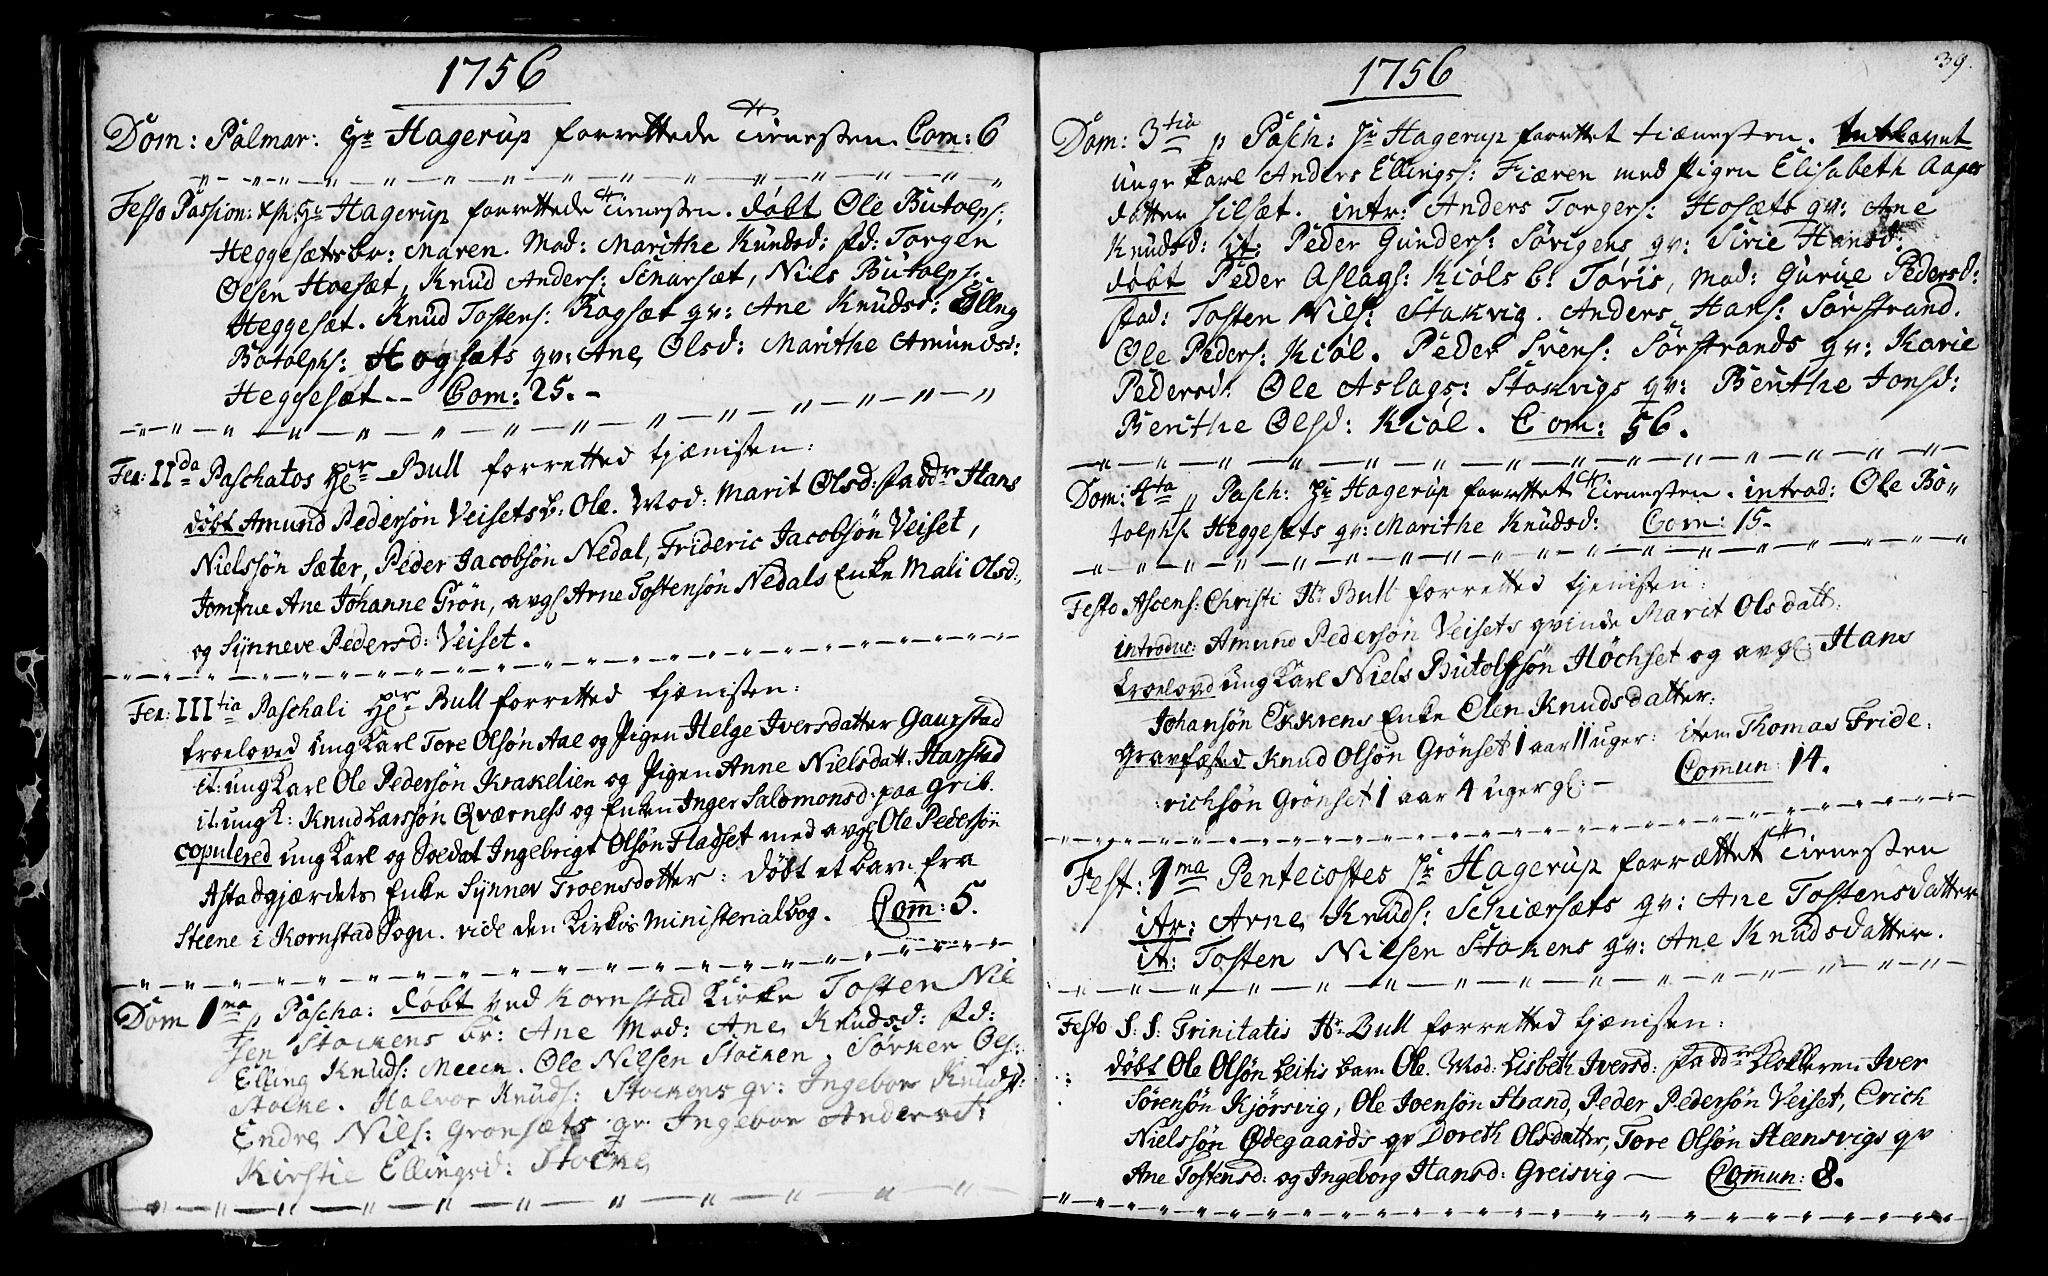 1756
Dom: Palmar: Hr Hagerup forrettede Tienesten. Com: 6
Festo Passion: Xsti: Hr Hagerup forrettede Tienesten. døbt Ole Butolps:
Heggesæters br: Maren. Mod: Marithe Knudsd: fd: Torgen
Olsen Hoesæt, Knud Anders: Schiarsæt, Niels Butolps:
Heggesæt. Knud Tostens: Rogsæt qv: Ane Knudsd: Elling
Botolphs: Hogsæts qv: Ane Olsd: Marithe Amundsd:
Heggesæt -- Com: 25. -
Fer: IIda Paschatos Her Bull forretted tjænisten:
døbt Amund Pedersøn Veisets b: Ole. Mod: Marit Olsd: faddr Hans
Nielssøn Sæter, Peder Jacobsøn Nedal, Frideric Jacobsøn Veiset,
Jomfrue Ane Johanne Grøn, avgl Arne Tostensøn Nedals Enke Mali Olsd:,
og Synneve Pedersd: Veiset.
Fer: IIItia Paschali Her Bull forretted tjænisten:
troeloved ung Karl Tore Olsøn Aae og Pigen Helge Iversdatter Gaurstad
it: ung Karl Ole Pedersøn Krakelien og Pigen Anne Nielsdatt: Harstad
it: ung K: Knud Larssøn Qværness og Enken Inger Salomonsd: paa Grib.
copulered ung Karl og Soldat Ingebrigt Olsøn Fladset med avgl Ole Pedersøn
Astadgjærdets Enke Synnev Troensdotter: døbt et barn fra
Steene i Kornstad Sogn. vide den Kirkis Ministerialbog. Com: 5.
Dom 1ma p Pascha: døbt ved Kornstad Kirke Tosten Nie
sen Stockens br: Ane Mod: Ane Knudsd: fd:
Elling Knuds: Meeen. Ole Nilsen Stocken. Sørker Ols:
Stocke. Halvor Knuds: Stockens qv: Ingebor Knudsd:
Endre Nils: Gronsæts qv: Ingebor Andersd:
Kirstie Ellingsd: Stocke
1756
39.
Dom: 3tia p Pasch: Hr Hagerup forrettet tiænesten. trolovet
unge Karl Anders Ellings: Fiæren med Pigen Elisabeth Aages
dotter Silsæt. intr: Anders Torgers: Hosæts qv: Ane
Knudsd: it: Peder Gunders: Sørigens qv: Sirie Hansd:
døbt Peder Aslags: Kiøls b: Tøris, Mod: Gurue Pedersd:
fad: Tosten Nils: Stokvig. Anders Hans: Sørstrand.
Ole Peders: Kiøl. Peder Svens: Sørstrands qv: Karie
Pedersd: Ole Aslags: Stokvigs qv: Berithe Jonsd:
Berithe Olsd: Kiøl. Com: 56.
Dom: 4ta p Pasch: Hr Hagerup forrettet Tienesten. introd: Ole Bo„
tolphs: Heggesæts qv: Marithe Knudsd: Com: 15-
Festo Ascens: Christi Hr Bull forretted tjenisten:
introduc: Amund Pedersøn Veisets qvinde Marit Olsdatt:
troelovd ung Karl Niels Butolfsøn Høchset og avgl: Hans
Johansøn Ekkrens Enke Olen Knudsdatter:
gravfæsted Knud Olsøn Grønset 1 aar 11 uger: item Thomas Fride:
richsøn Grønset 1 aar 4 uger gl: - Commun: 14.
Fest: 1ma Pentecostes Hr Hagerup forrættet Tienesten
itr: Arne Knuds: Schiærsæts qv: Ane Tostensdatter
it: Tosten Nilsen Stokens qv: Ane Knudsdatter.
Festo S: S: Trinitatis Hr Bull forretted tjænisten:
døbt Ole Olsøn Leitis barn Ole. Mod: Lisbeth Iversd: faddre Klokkeren Iver
Sørensøn Kjørsvig, Ole Joensøn Strand, Peder Pedersøn Veiset, Erich
Nielssøn Ødegaards qv Doreth Olsdatter, Tore Olsøn Steensvigs qv
Ane Tostensd: og Ingeborg Hansd: Greisvig — Commun: 8.